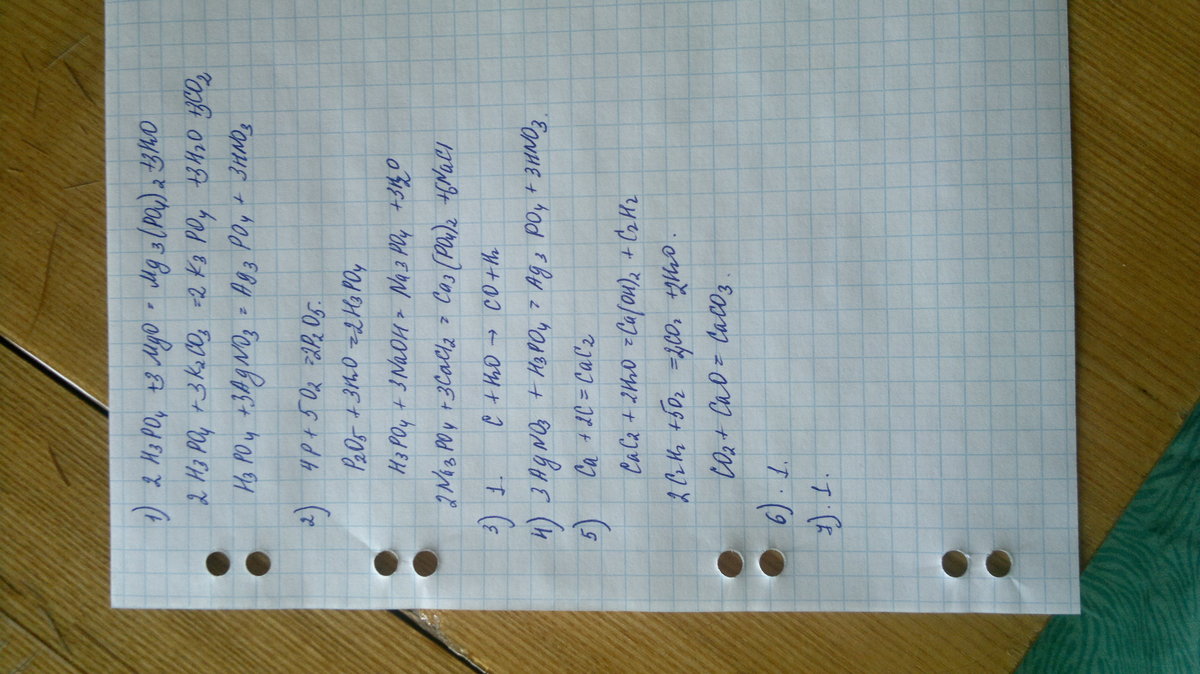 1) 2 H3PO4 + 3 MgO = Mg3(PO4)2 + 3H2O
2 H3PO4 + 3K2CO3 = 2 K3PO4 + 3H2O + 3CO2
H3PO4 + 3AgNO3 = Ag3PO4 + 3HNO3
2) 4P + 5O2 = 2P2O5.
P2O5 + 3H2O = 2H3PO4
H3PO4 + 3NaOH = Na3PO4 + 3H2O
2Na3PO4 + 3CaCl2 = Ca3(PO4)2 + 6NaCl
3) 1. C + H2O → CO + H2
4) 3AgNO3 + H3PO4 = Ag3PO4 + 3HNO3.
5) Ca + 2C = CaC2
CaC2 + 2H2O = Ca(OH)2 + C2H2
2C2H2 + 5O2 = 2CO2 + 2H2O.
CO2 + CaO = CaCO3.
6). 1.
7). 1.